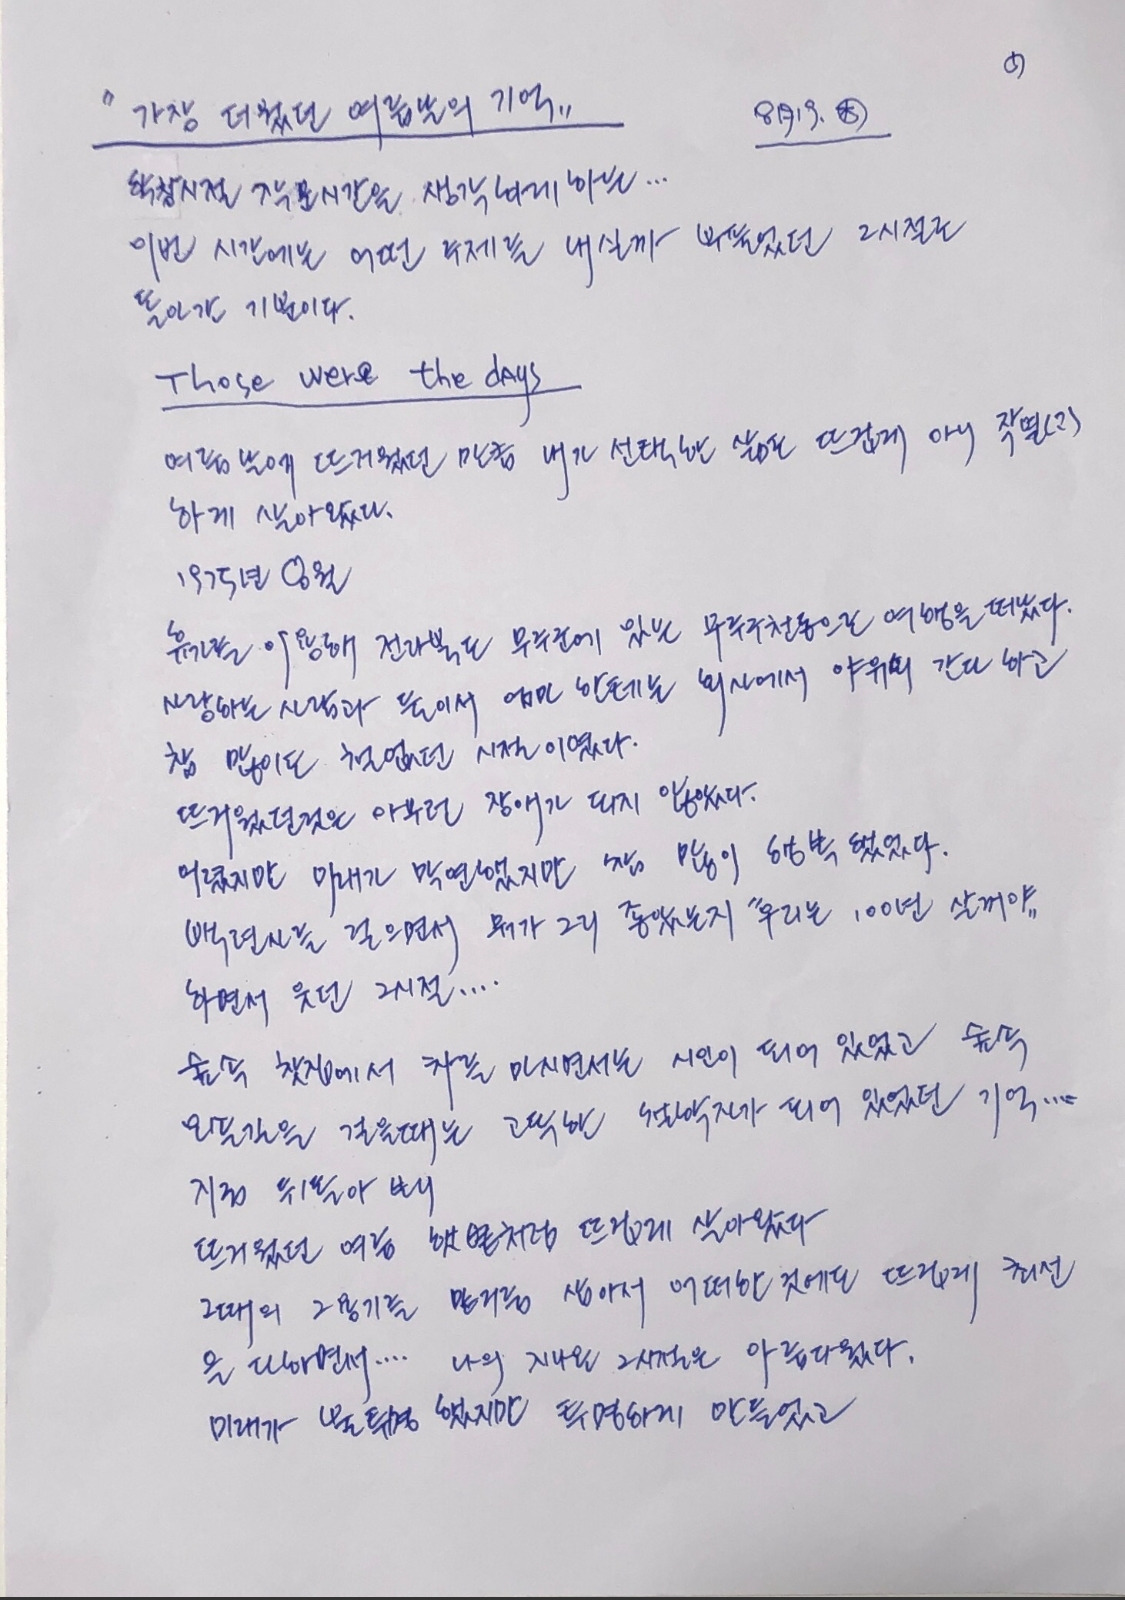 ①
"가장 더웠던 여름날의 기억"
8月19. ㊍
학창시절 작문시간을 생각하게 하는...
이번 시간에는 어떤 주제를 내실까 했던 그시절로
돌아간 기분이다.
Those were the days
여름날에 뜨거웠던 만큼 내가 선택한 삶도 뜨겁게 아니 작열(?)
하게 살아왔다.
1975년 8월
휴가를 이용해 전라북도 무주군에 있는 무주구천동으로 여행을 떠났다.
사랑하는 사람과 둘이서 엄마 한테는 회사에서 야유회 간다 하고
참 많이도 철없던 시절이였다.
뜨거웠던것은 아무런 장애가 되지 않았다.
어렸지만 미래가 막연했지만 참 많이 행복했었다.
백련사를 걸으면서 뭐가 그리 좋았는지 "우리는 100년 살꺼야"
하면서 웃던 그시절....
숲속 찻집에서 차를 마시면서는 시인이 되어 있었고 숲속
오솔길을 걸을때는 고독한 철학자가 되어 있었던 기억....
지금 뒤돌아 보니
뜨거웠던 여름 햇볕처럼 뜨겁게 살아왔다
그때의 그용기를 밑거름 삼아서 어떠한것에도 뜨겁게 최선
을 다하면서.... 나의 지나온 그시절은 아름다웠다.
미래가 불투명 했지만 투명하게 만들었고